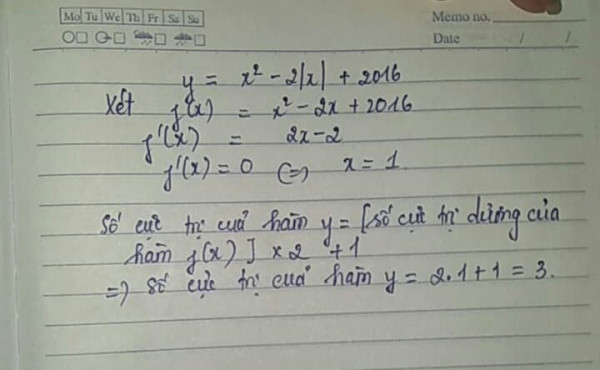 Mo Tu We Th Fr Sa Su
Memo no.
Date / /
y = x² - 2|x| + 2016
Xét f(x) = x² - 2x + 2016
f'(x) = 2x - 2
f'(x) = 0 (=) x = 1
Số cực trị cuả hàm y = [số cực trị dương của
hàm f(x)] x 2 + 1
=) số cực trị cuả hàm y = 2.1 + 1 = 3.